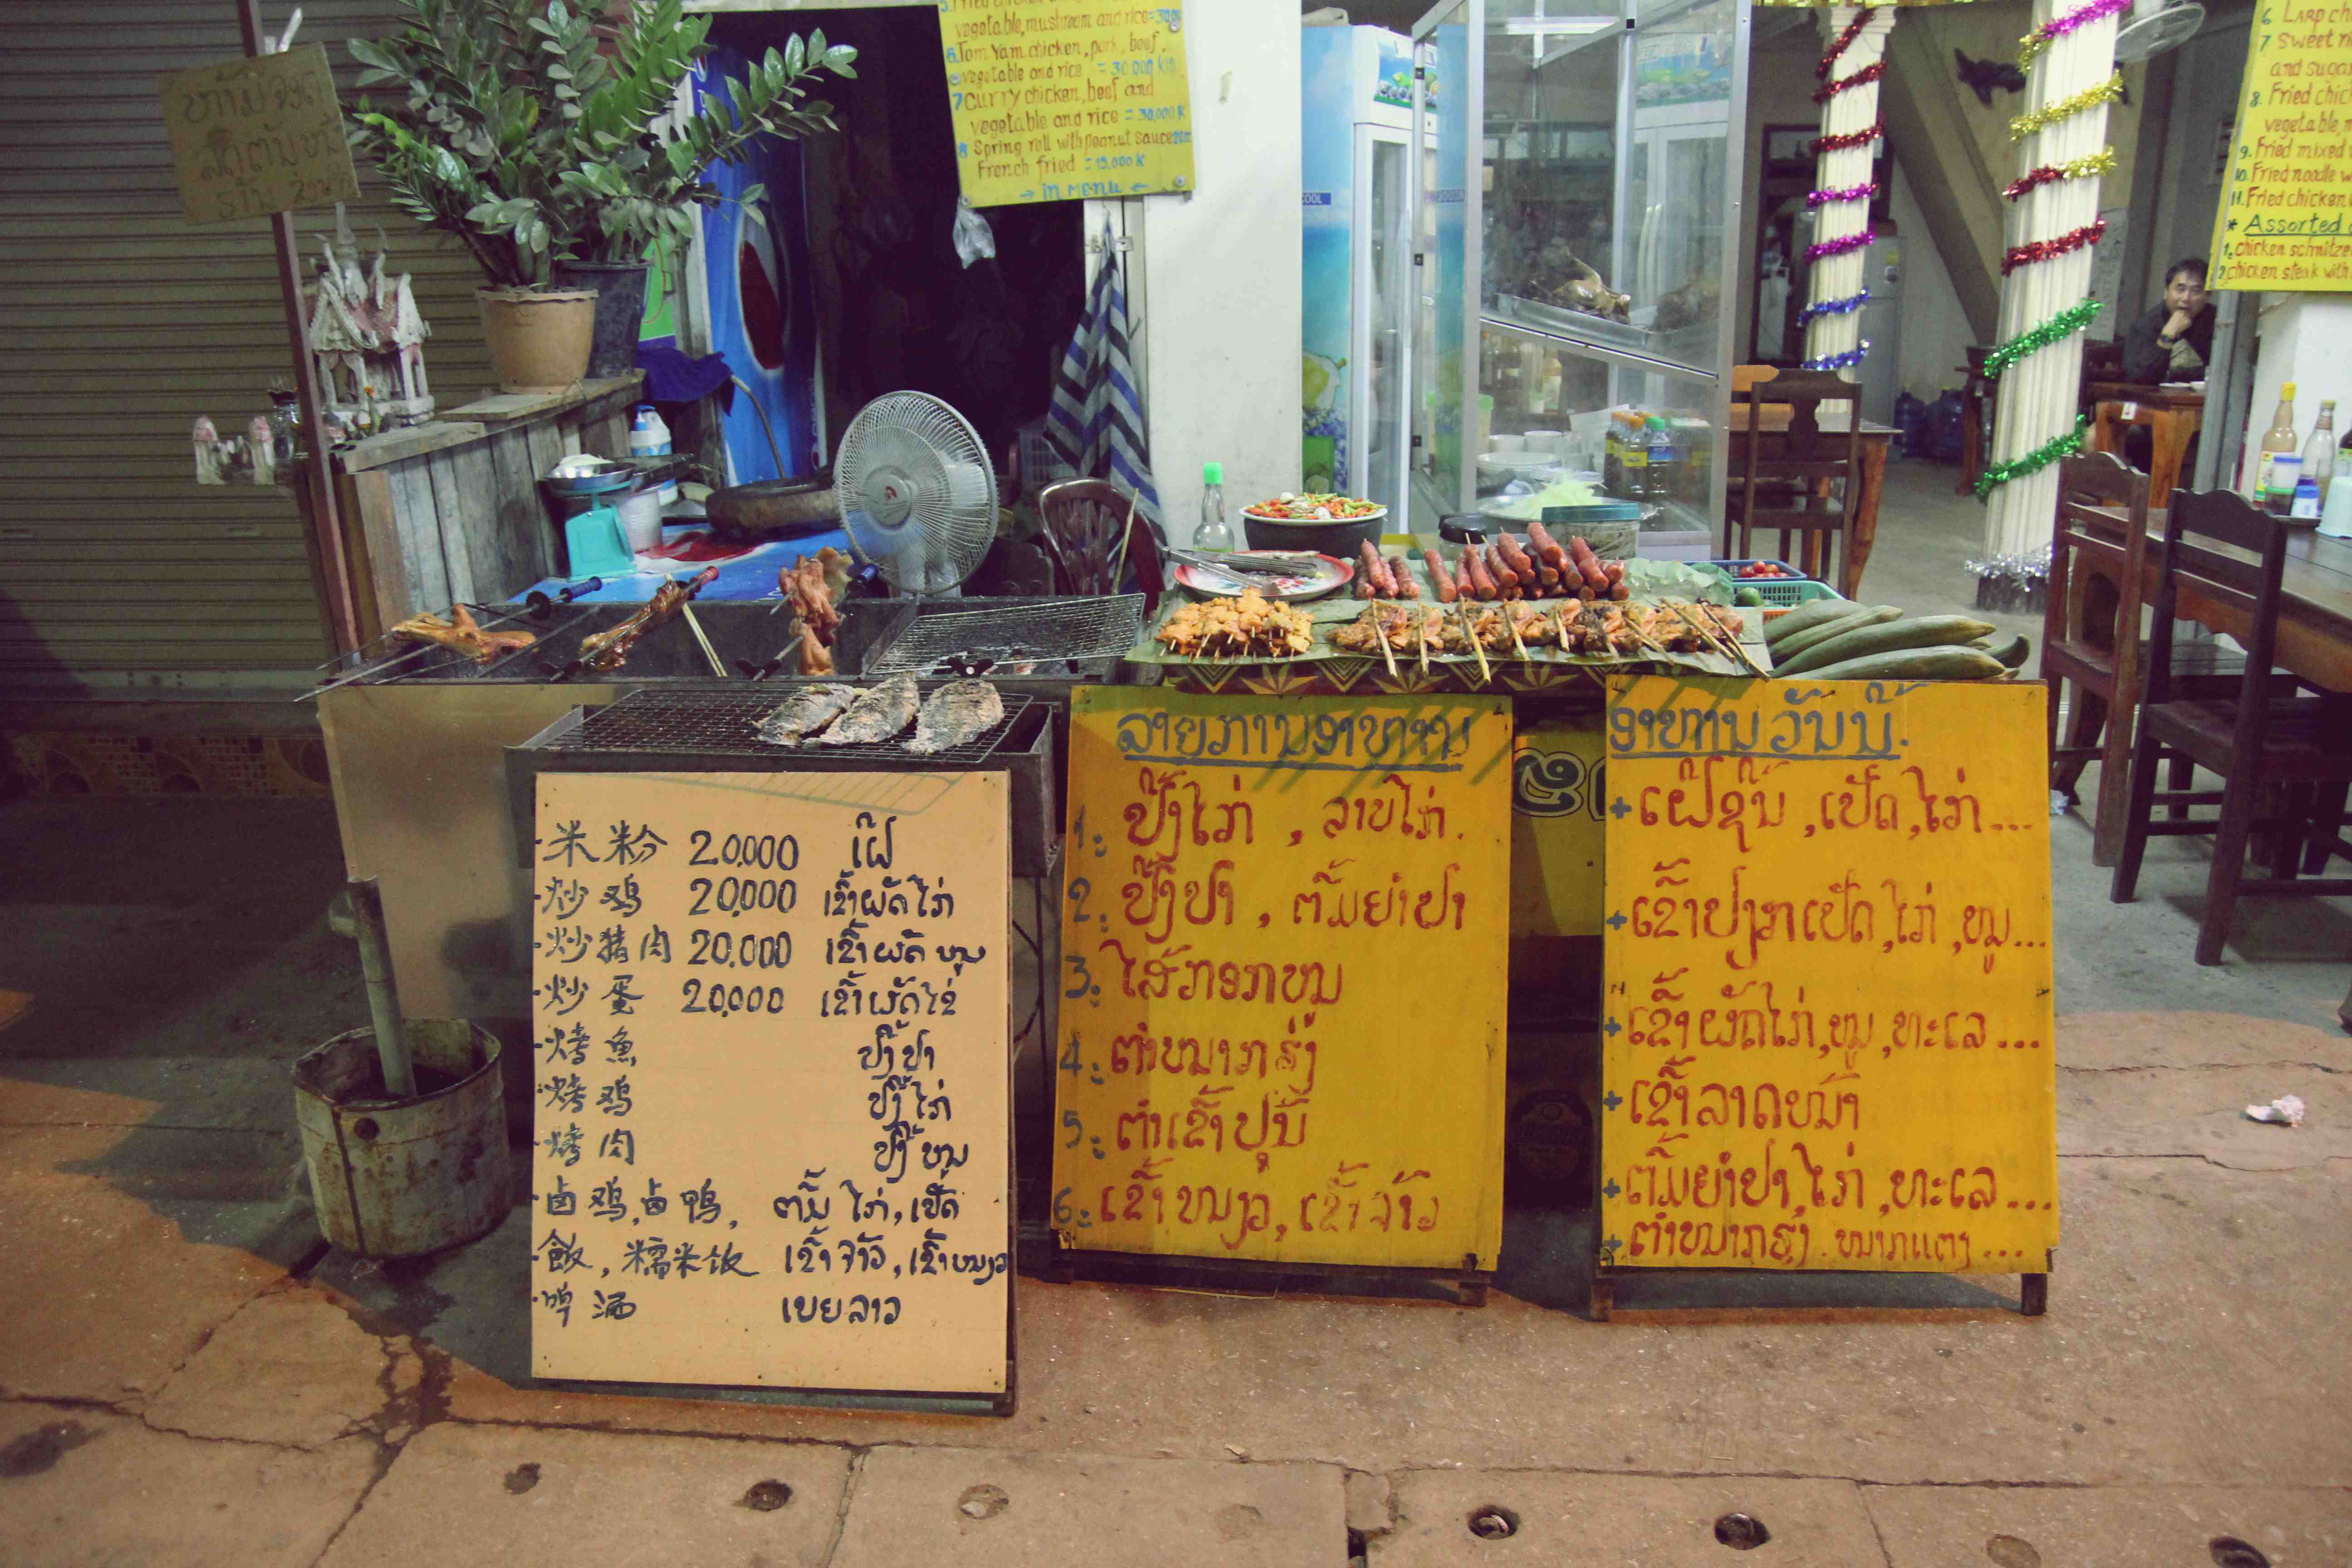 5. Fried chicken
vegetable, mushroom and rice = 30.000
6 Tom Yam chicken, pork, beef,
vegetable and rice = 30.000 kip
7 Curry chicken, beef and
vegetable and rice = 30,000 K
8 Spring roll with peanut sauce
French fried = 15.000 K
→ in MENU ←
6 LARP ch
7 Sweet ri
and sugar
8. Fried chic
vegetable,
9. Fried mixed
10. Fried noodle w
11. Fried chicken
* Assorted
1. chicken schnitze
2 chicken steak with
COOL
- 米粉 20.000 ເຝີ
- 炒鸡 20.000 ເຂົ້າຜັດໄກ່
- 炒猪肉 20.000 ເຂົ້າຜັດ ໝູ
- 炒蛋 20.000 ເຂົ້າຜັດໄຂ່
- 烤魚 ປີ້ງປາ
- 烤鸡 ປີ້ງໄກ່
- 烤肉 ປີ້ງ ໝູ
- 卤鸡,卤鸭, ຕົ້ມ ໄກ່, ເປັດ
- 飯, 糯米饭 ເຂົ້າຈ້າວ, ເຂົ້າໜຽວ
- 啤酒 ເບຍລາວ
ລາຍການອາຫານ
1: ປີ້ງໄກ່, ລາບໄກ່.
2: ປີ້ງປາ, ຕົ້ມຍຳປາ
3: ໄສ້ກອກໝູ
4: ຕຳໝາກຮຸ່ງ
5: ຕຳເຂົ້າປຸ້ນ
6: ເຂົ້າໜຽວ, ເຂົ້າຈ້າວ
ອາຫານ ວັນນີ້.
+ ເຝີຊີ້ນ, ເປັດ, ໄກ່...
+ ເຂົ້າປຽກເປັດ, ໄກ່, ໝູ...
+ ເຂົ້າຜັດໄກ່, ໝູ, ທະເລ...
+ ເຂົ້າລາດໜ້າ
+ ຕົ້ມຍຳປາ, ໄກ່, ທະເລ...
+ ຕຳໝາກຮຸ່ງ. ໝາກແຕງ...